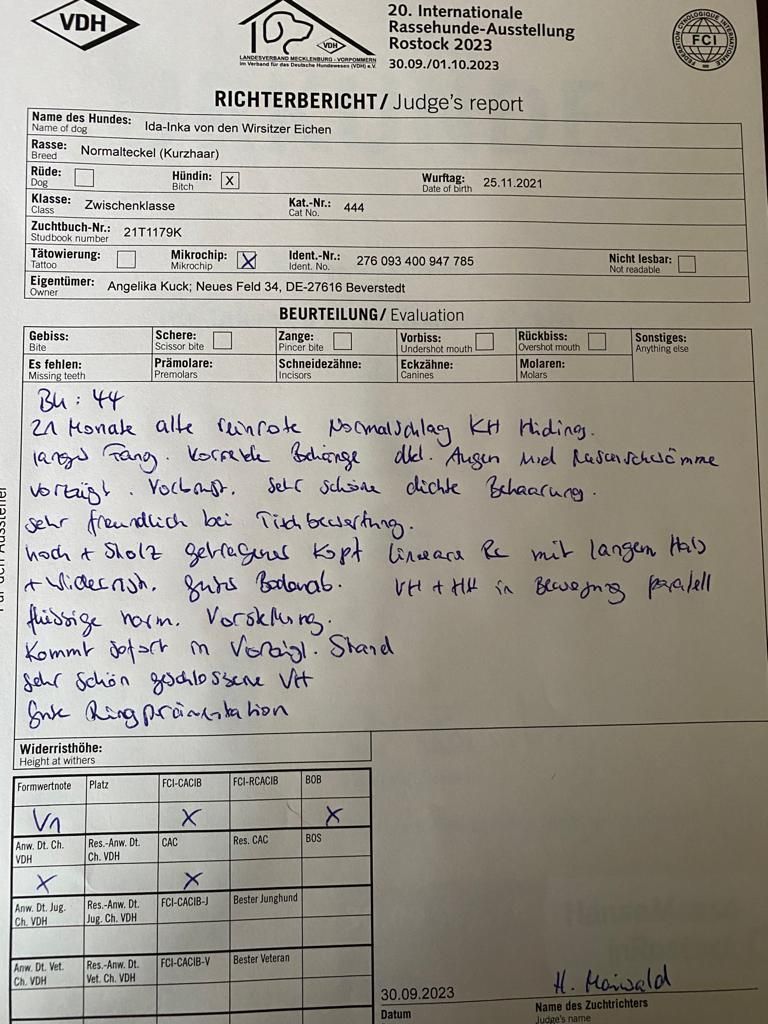 VDH
VDH
LANDESVERBAND MECKLENBURG - VORPOMMERN
im Verband für das Deutsche Hundewesen (VDH) e.V.
20. Internationale
Rassehunde-Ausstellung
Rostock 2023
30.09./01.10.2023
FEDERATION CYNOLOGIQUE INTERNATIONALE
FCI
RICHTERBERICHT / Judge's report
Name des Hundes: Ida-Inka von den Wirsitzer Eichen
Name of dog
Rasse: Normalteckel (Kurzhaar)
Breed
Rüde: Hündin: X Wurftag: 25.11.2021
Dog Bitch Date of birth
Klasse: Zwischenklasse Kat.-Nr.: 444
Class Cat No.
Zuchtbuch-Nr.: 21T1179K
Studbook number
Tätowierung: Mikrochip: X Ident.-Nr.: 276 093 400 947 785 Nicht lesbar:
Tattoo Mikrochip Ident. No. Not readable
Eigentümer: Angelika Kuck; Neues Feld 34, DE-27616 Beverstedt
Owner
BEURTEILUNG / Evaluation
Gebiss: Schere: Zange: Vorbiss: Rückbiss: Sonstiges:
Bite Scissor bite Pincer bite Undershot mouth Overshot mouth Anything else
Es fehlen: Prämolare: Schneidezähne: Eckzähne: Molaren:
Missing teeth Premolars Incisors Canines Molars
BU: 44
21 Monate alte reinrote Normalschlag KH Hündin.
langer Fang. Korrekte Behänge dkl. Augen und Nasenschwämme
vorzügl. Vorbrust. sehr schöne dichte Behaarung.
sehr freundlich bei Tischbewertung.
hoch + stolz getragener Kopf lineare RL mit langem Hals
+ Widerrist. gutes Bodenab. VH + HH in Bewegung parallel
flüssige harm. Vorstellung.
Kommt sofort in Vorzügl. Stand
sehr schön geschlossene VH
gute Ringpräsentation
Widerristhöhe:
Height at withers
Formwertnote Platz FCI-CACIB FCI-RCACIB BOB
V1 X X
Anw. Dt. Ch. VDH Res.-Anw. Dt. Ch. VDH CAC Res. CAC BOS
X X
Anw. Dt. Jug. Ch. VDH Res.-Anw. Dt. Jug. Ch. VDH FCI-CACIB-J Bester Junghund
Anw. Dt. Vet. Ch. VDH Res.-Anw. Dt. Vet. Ch. VDH FCI-CACIB-V Bester Veteran
30.09.2023 H. Maiwald
Datum Name des Zuchtrichters
Judge's name
Für den Aussteller